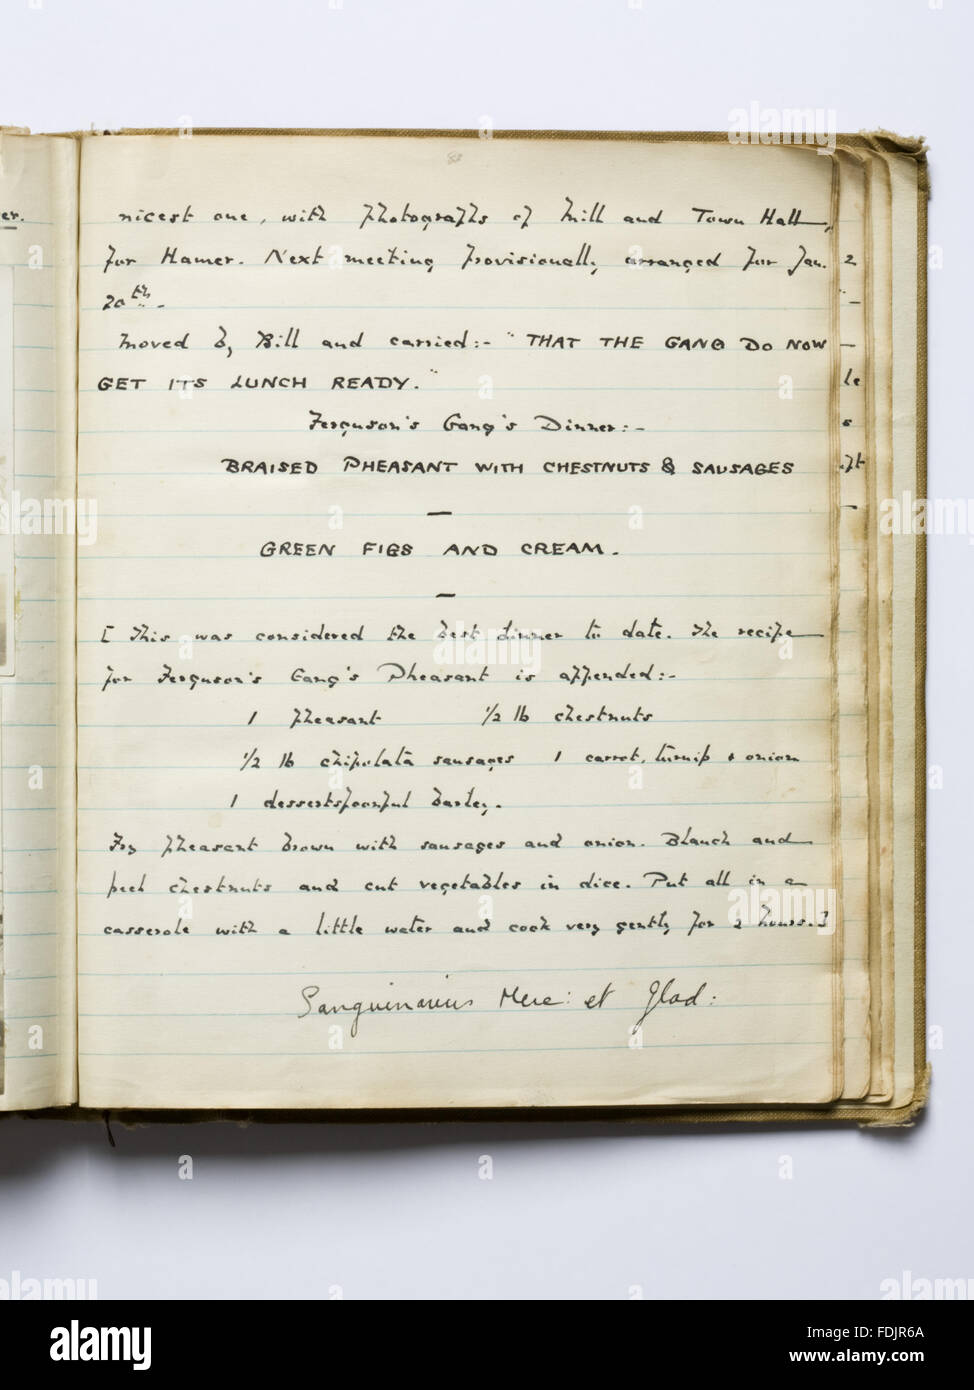 88
nicest one, with photographs of Mill and Town Hall,
for Hamer. Next meeting provisionally arranged for Jan.
20th.-
Moved by Bill and carried:- "THAT THE GANG DO NOW
GET ITS LUNCH READY."
Ferguson's Gang's Dinner:-
BRAISED PHEASANT WITH CHESTNUTS & SAUSAGES
—
GREEN FIGS AND CREAM.
—
[ This was considered the best dinner to date. The recipe
for Ferguson's Gang's Pheasant is appended:-
1 pheasant 1/2 lb chestnuts
1/2 lb chipolata sausages 1 carrot, turnip & onion
1 dessertspoonful barley.
Fry pheasant brown with sausages and onion. Blanch and
peel chestnuts and cut vegetables in dice. Put all in a
casserole with a little water and cook very gently for 2 hours.]
Sanguinarius Mere: et Glad:
er.
2
"-
—
le
s
ft
—
alamy
alamy stock photo
FDJR6A
www.alamy.com